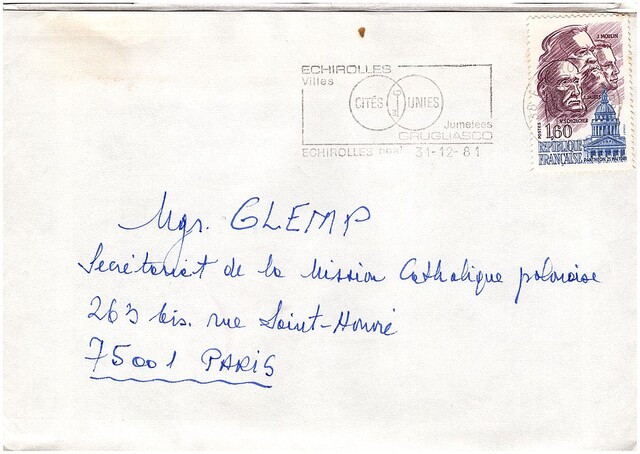 ECHIROLLES
Villes
CITÉS UNIES
Jumelées
GRUGLIASCO
ECHIROLLES 31-12-81
J. MOULIN
J. JAURÈS
V. SCHOELCHER
POSTES 1,60
RÉPUBLIQUE
FRANÇAISE
PANTHÉON 21 MAI 1981
Mgr. GLEMP
Secrétariat de la Mission Catholique polonaise
263 bis. rue Saint-Honoré
75001 PARIS